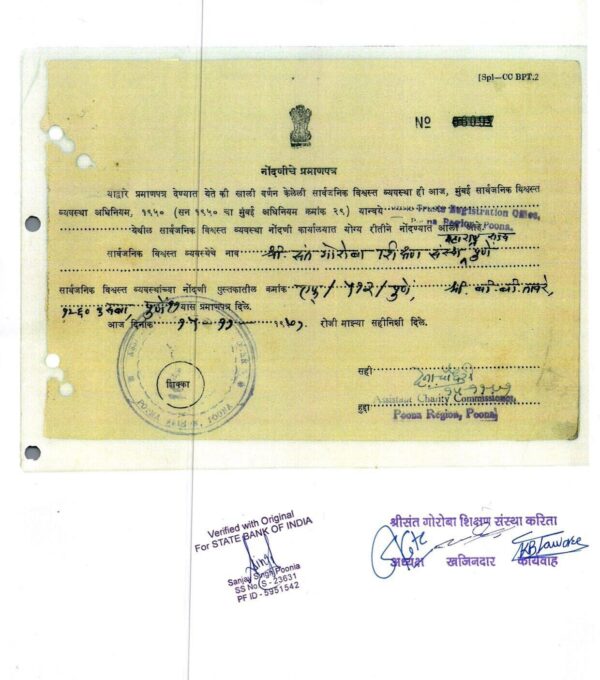 [Spl—CC BPT.2
Nº
नोंदणीचे प्रमाणपत्र
याद्वारे प्रमाणपत्र देण्यात येते की खाली वर्णन केलेली सार्वजनिक विश्वस्त व्यवस्था ही आज, मुंबई सार्वजनिक विश्वस्त
व्यवस्था अधिनियम, १९५० (सन १९५० चा मुंबई अधिनियम क्रमांक २९) यान्वये Registration Office,
Poona Region, Poona.
येथील सार्वजनिक विश्वस्त व्यवस्था नोंदणी कार्यालयात योग्य रीतीने नोंदण्यात आली आहे.
महाराष्ट्र राज्य
सार्वजनिक विश्वस्त व्यवस्थेचे नाव श्री. संत गोरोबा शिक्षण संस्था पुणे
सार्वजनिक विश्वस्त व्यवस्थांच्या नोंदणी पुस्तकातील क्रमांक पुणे,
पुणे यास प्रमाणपत्र दिले.
आज दिनांक रोजी माझ्या सहीनिशी दिले.
शिक्का
POONA
सही
Assistant Charity Commissioner,
हुद्दा
Poona Region, Poona
Verified with Original
For STATE BANK OF INDIA
Sanjay Singh Poonia
SS No. S - 23631
PF ID - 5951542
श्रीसंत गोरोबा शिक्षण संस्था करिता
KBTaware
अध्यक्ष खजिनदार कार्यवाह